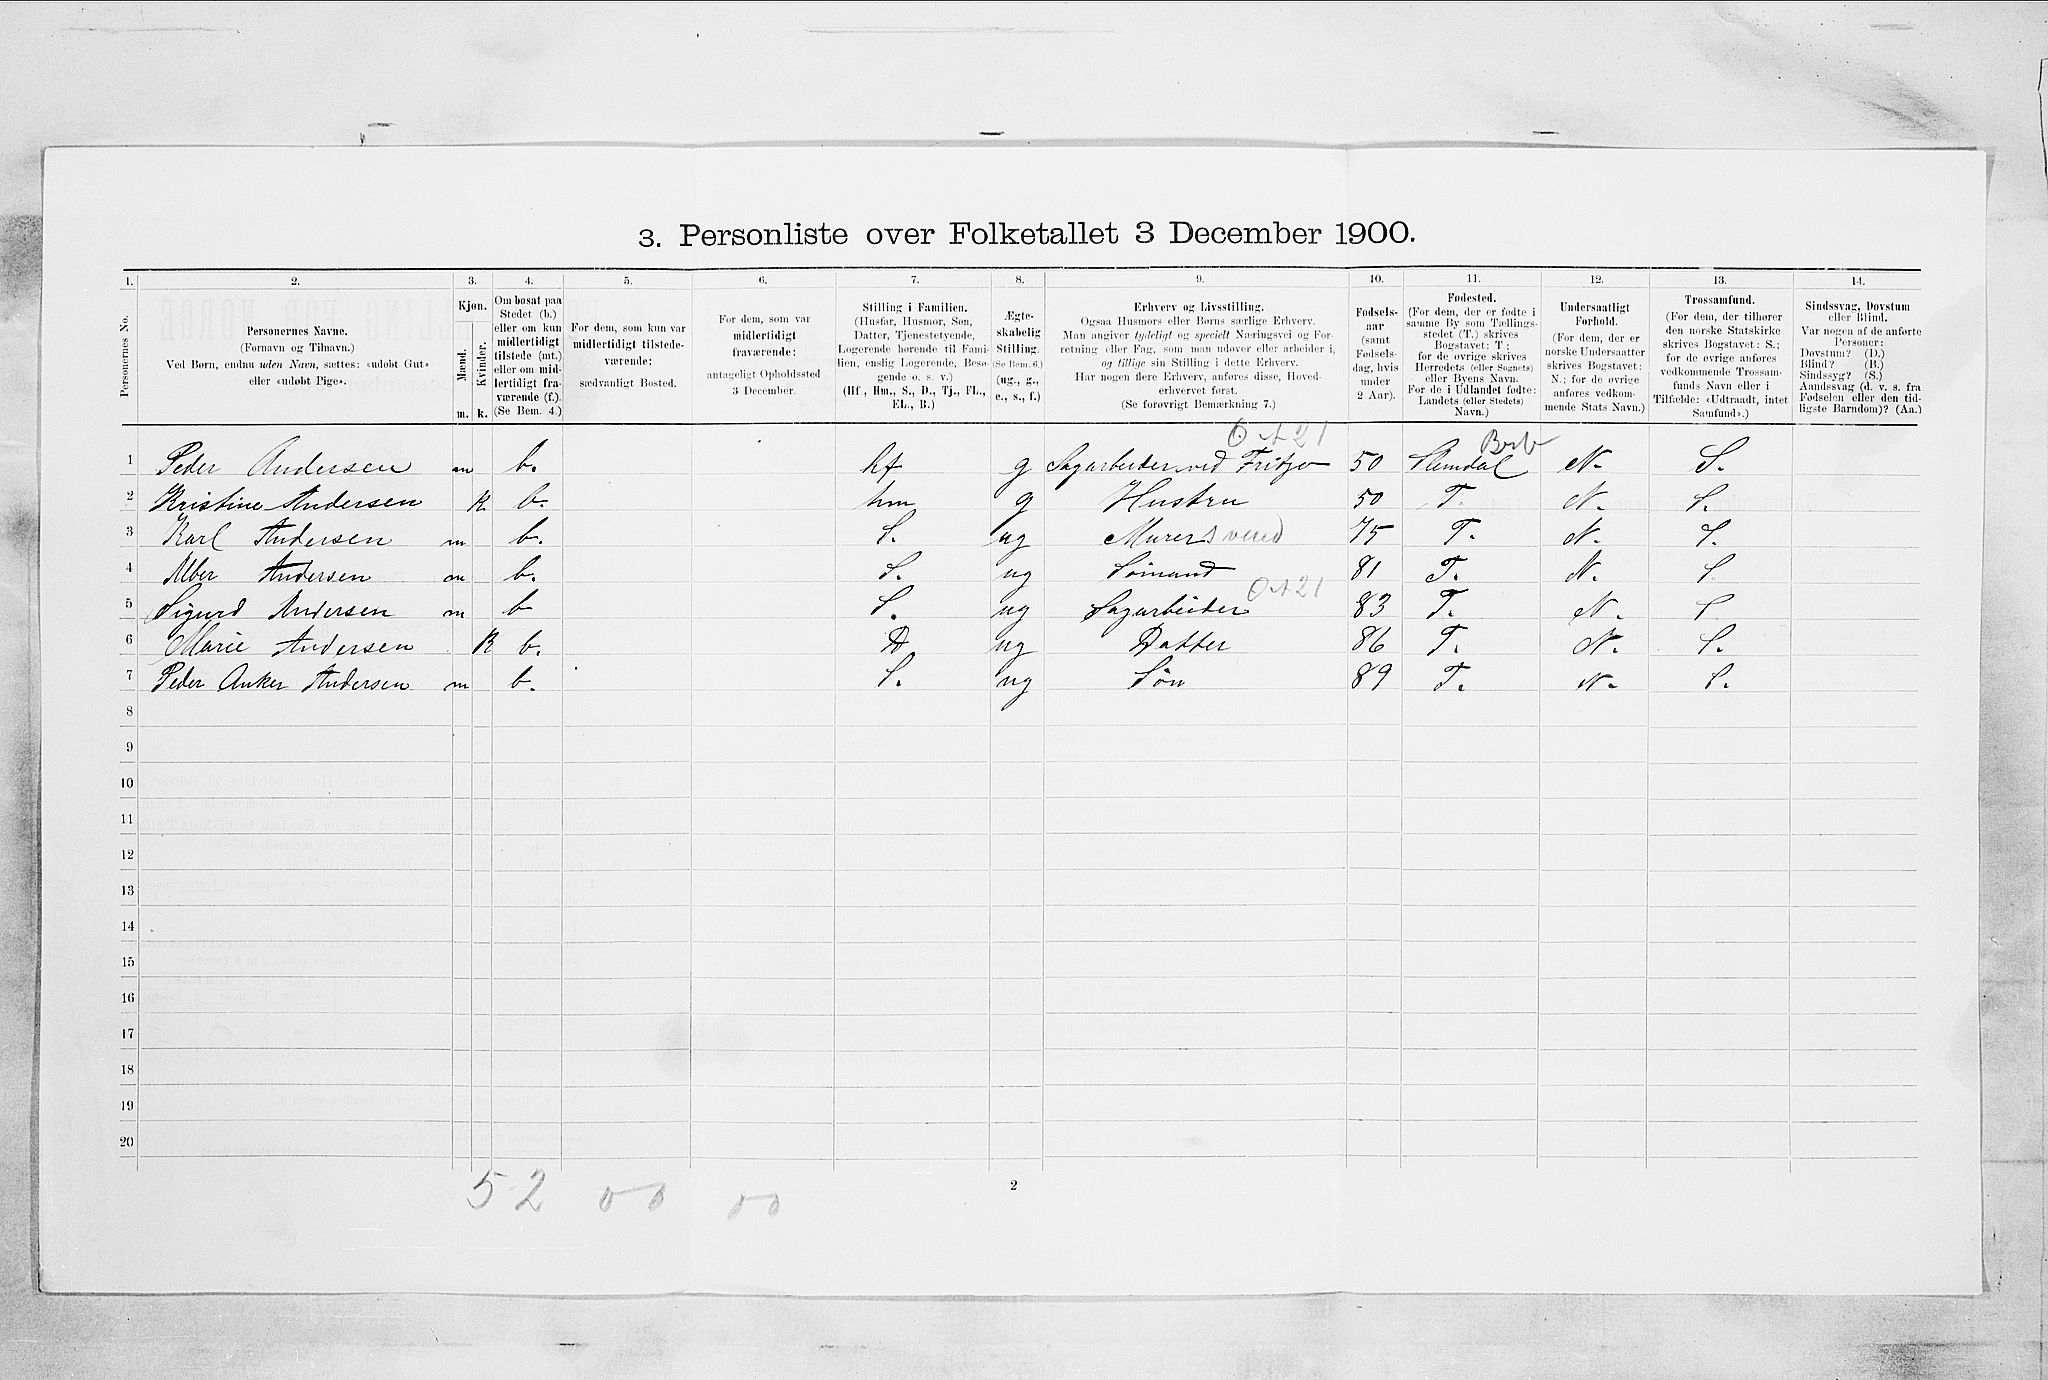 3. Personliste over Folketallet 3 December 1900.
1. 2. 3. 4. 5. 6. 7. 8. 9. 10. 11. 12. 13. 14.
Personernes No.
Personernes Navne.
(Fornavn og Tilnavn.)
Ved Børn, endnu uden Navn, sættes: «udøbt Gut»
eller «udøbt Pige».
Kjøn.
Mænd.
Kvinder.
m. k.
Om bosat paa
Stedet (b.)
eller om kun
midlertidigt
tilstede (mt.)
eller om mid-
lertidigt fra-
værende (f.).
(Se Bem. 4.)
For dem, som kun var
midlertidigt tilstede-
værende:
sædvanligt Bosted.
For dem, som var
midlertidigt
fraværende:
antageligt Opholdssted
3 December.
Stilling i Familien.
(Husfar, Husmor, Søn,
Datter, Tjenestetyende,
Logerende hørende til Fami-
lien, enslig Logerende, Besø-
gende o. s. v.)
(Hf., Hm., S., D., Tj., FL.,
EL., B.)
Ægte-
skabelig
Stilling.
(Se Bem. 6.)
(ug., g.,
e., s., f.)
Erhverv og Livsstilling.
Ogsaa Husmors eller Børns særlige Erhverv.
Man angiver tydeligt og specielt Næringsvei og For-
retning eller Fag, som man udøver eller arbeider i,
og tillige sin Stilling i dette Erhverv.
Har nogen flere Erhverv, anføres disse, Hoved-
erhvervet først.
(Se forøvrigt Bemærkning 7.)
Fødsels-
aar
(samt
Fødsels-
dag, hvis
under
2 Aar).
Fødested.
(For dem, der er fødte i
samme By som Tællings-
stedet (T.) skrives
Bogstavet: T.;
for de øvrige skrives
Herredets (eller Sognets)
eller Byens Navn.
For de i Udlandet fødte:
Landets (eller Stedets)
Navn.)
Undersaatligt
Forhold.
(For dem, der er
norske Undersaatter
skrives Bogstavet:
N.; for de øvrige
anføres vedkom-
mende Stats Navn.)
Trossamfund.
(For dem, der tilhører
den norske Statskirke
skrives Bogstavet: S.;
for de øvrige anføres
vedkommende Trossam-
funds Navn eller i
Tilfælde: «Udtraadt, intet
Samfund».)
Sindssvag, Døvstum
eller Blind.
Var nogen af de anførte
Personer:
Døvstum? (D.)
Blind? (B.)
Sindssyg? (S.)
Aandssvag (d. v. s. fra
Fødselen eller den tid-
ligste Barndom)? (Aa.)
1 Peder Andersen m b. hf g Sagarbeider ved Fritzø 50 Slemdal N. S.
2 Kristine Andersen k b. hm g Hustru 50 T. N. S.
3 Karl Andersen m b. S. ug Murersvend 75 T. N. S.
4 Alber Andersen m b. S. ug Sömand 81 T. N. S
5 Sigurd Andersen m b S. ug Sagarbeider 83 T. N. S
6 Marie Andersen k b. D ug Datter 86 T. N. S.
7 Peder Anker Andersen m b. S. ug Sön 89 T. N. S.
8
9
10
11
12
13
14
15
16
17
18
19
20
5 2 00 00
2